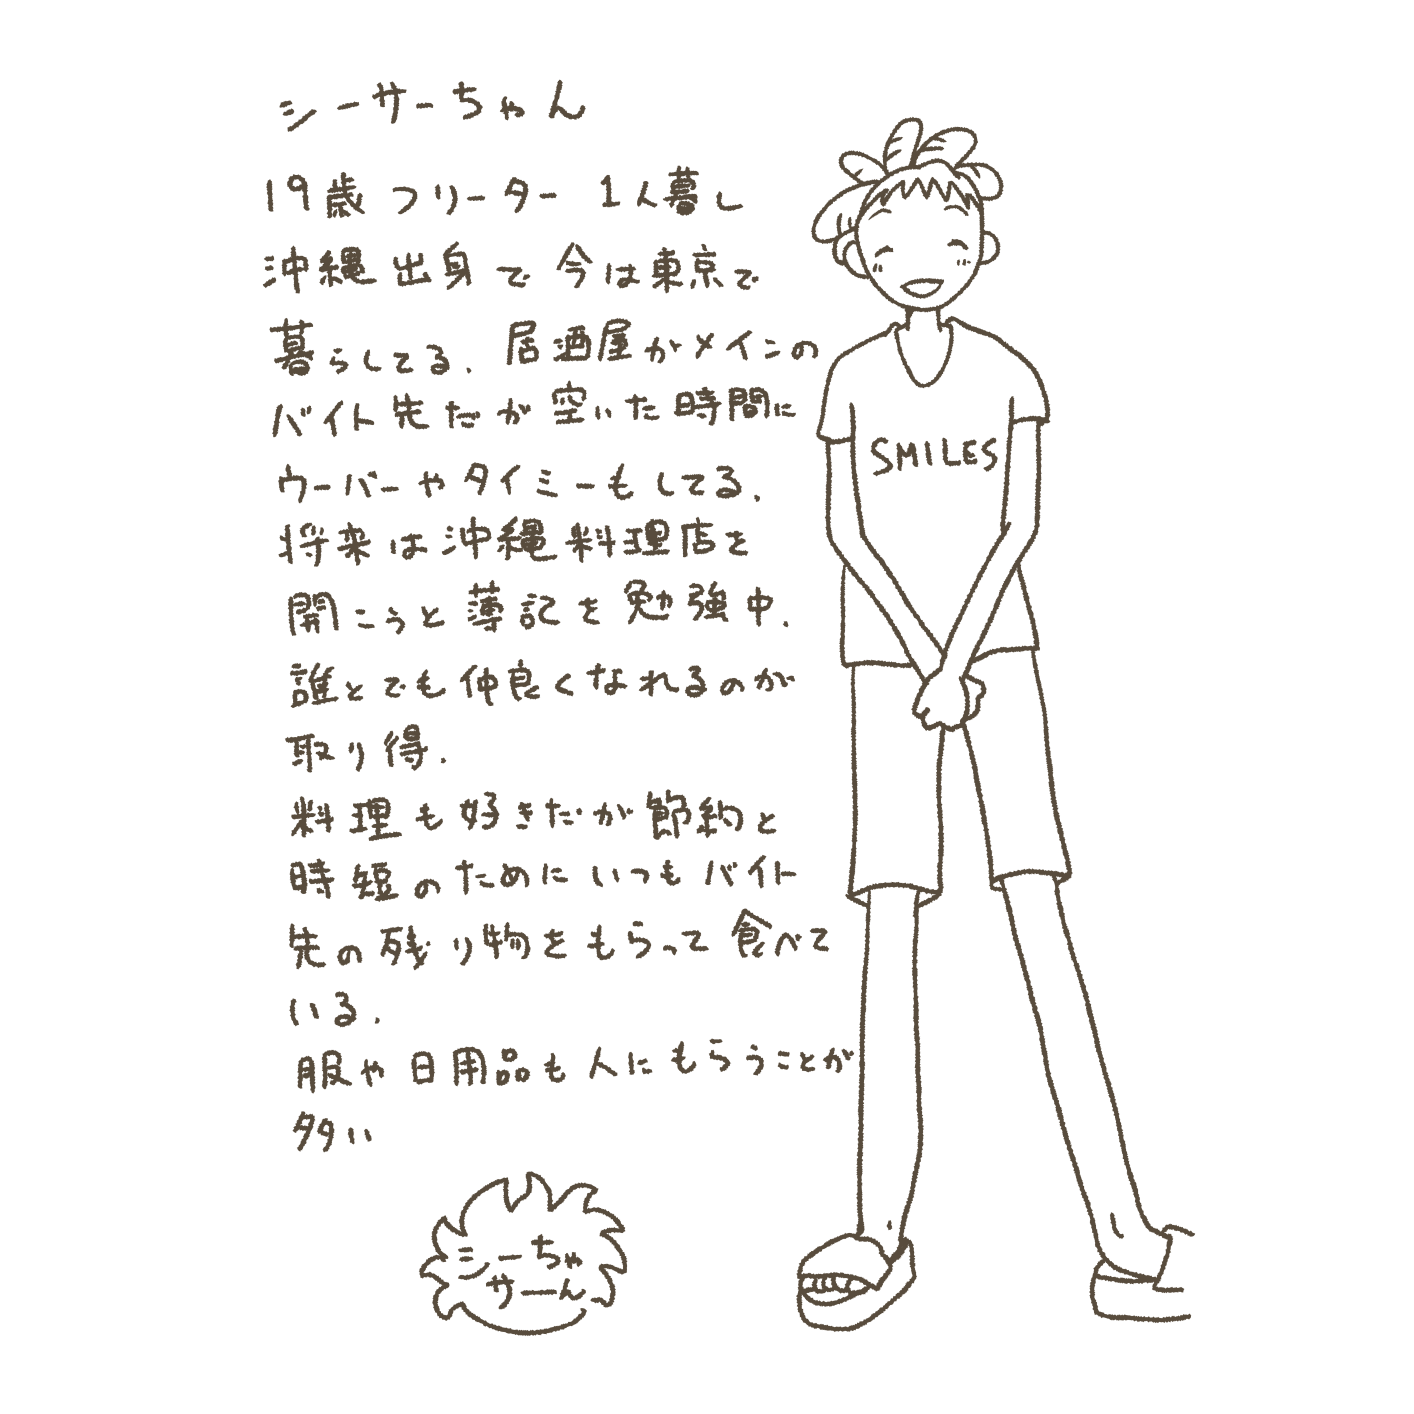 シーサーちゃん
19歳 フリーター 1人暮し
沖縄出身で今は東京で
暮らしてる. 居酒屋がメインの
バイト先だが空いた時間に
ウーバーやタイミーもしてる.
将来は沖縄料理店を
開こうと薄記を勉強中.
誰とでも仲良くなれるのが
取り得.
料理も好きだが節約と
時短のためにいつもバイト
先の残り物をもらって食べて
いる.
服や日用品も人にもらうことが
多い
SMILES
シーちゃ
サーん